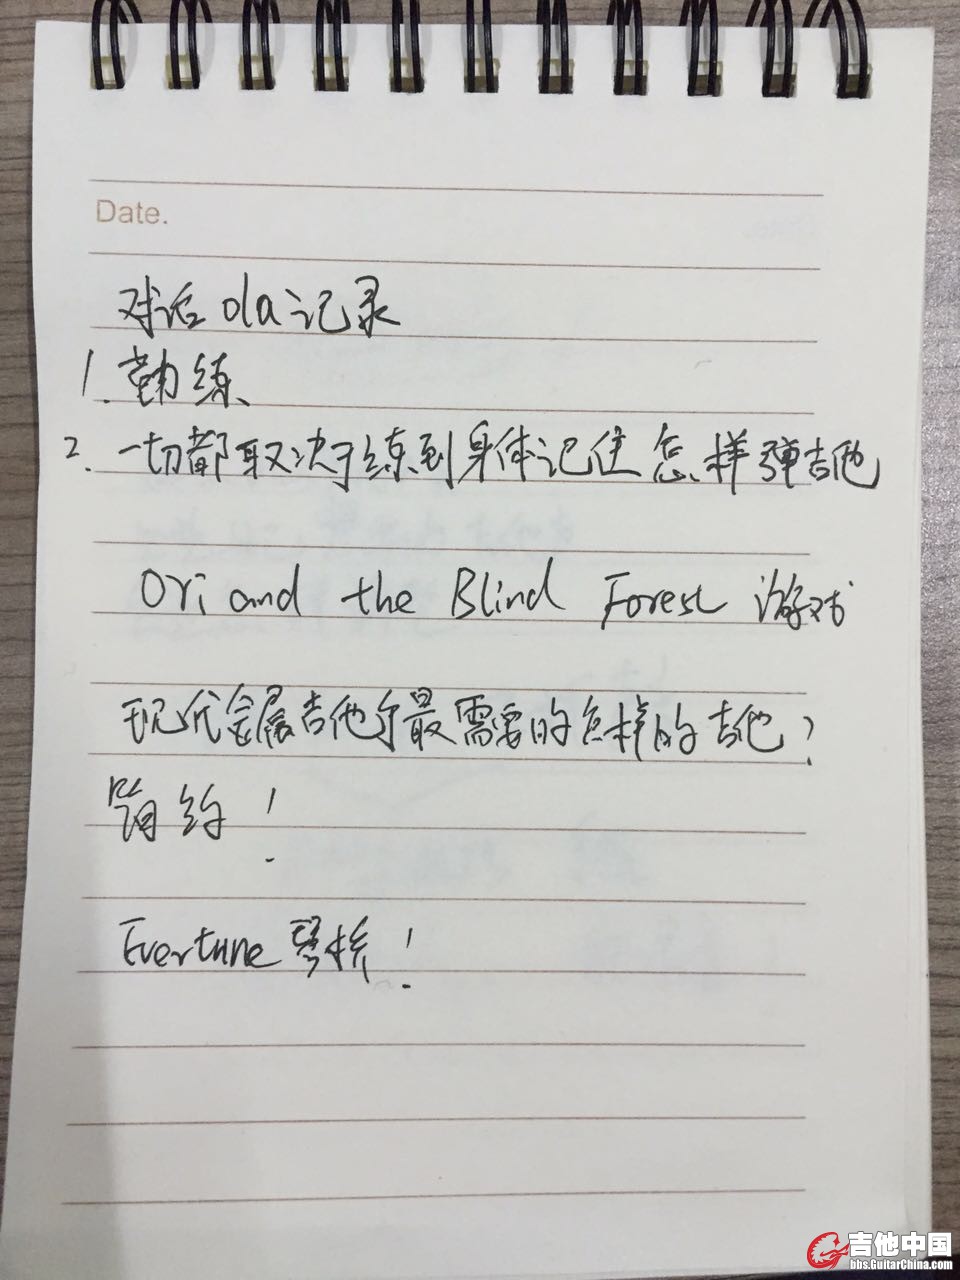 Date.
对话Ola记录
1. 勤练
2. 一切都取决于练到身体记住怎样弹吉他
Ori and the Blind Forest 游戏
现代金属吉他手最需要的怎样的吉他？
简约！
Evertune琴桥！
吉他中国
bbs.GuitarChina.com